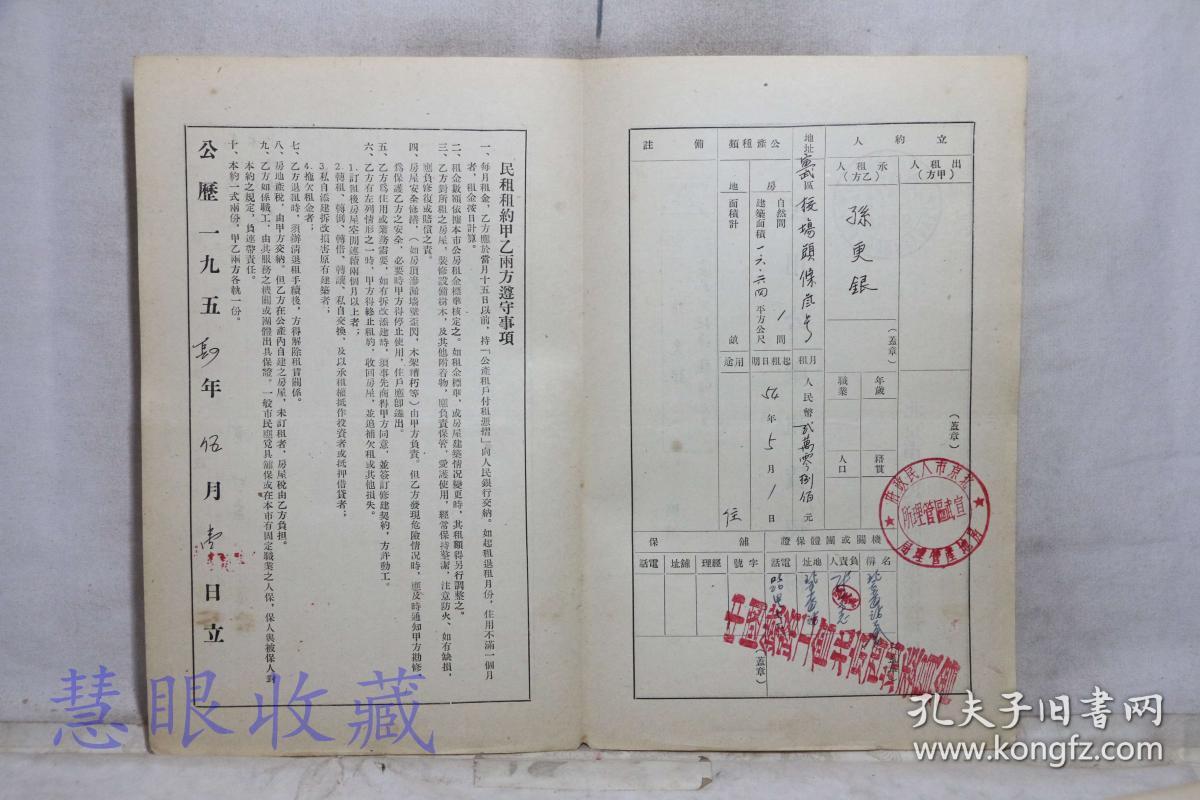 立約人
出租人（甲方）
（蓋章）
承租人（乙方）
孫更銀
（蓋章）
年歲
籍貫
職業
人口
地址
宣武區校場頭條
號
月租
人民幣貳萬零捌佰元
公產種類
房
自然間
1間
建築面積
一六·六四平方公尺
地
面積計
畝
起租日期
54年5月1日
用途
住
備註
機關或團體保證
名稱
負責人
地址
電話
（蓋章）
舖保
字號
經理
舖址
電話
北京市人民政府
房地產管理局
宣武區管理所
民租租約甲乙兩方遵守事項
一、每月租金，乙方應於當月十五日以前，持「公產租戶付租憑摺」向人民銀行交納。如起租退租月份，住用不滿一個月
者，租金按日計算。
二、租金數額依據本市公房租金標準核定之。如租金標準，或房屋建築情況變更時，其租額得另行調整之。
三、乙方對所租之房屋，裝修設備樹木，及其他附着物，應負責保管，愛護使用，經常保持整潔，注意防火，如有缺損，
應負修復或賠償之責。
四、房屋安全修繕，（如房頂滲漏墻壁歪閃，木架糟朽等）由甲方負責。但乙方發現危險情況時，應及時通知甲方勘修
為保護乙方之安全，必要時甲方得停止使用，住戶應卽遷出。
五、乙方為住用或業務需要，如有拆改添建時，須事先商得甲方同意，並簽訂修建契約，方許動工。
六、乙方有左列情形之一時，甲方得終止租約，收回房屋，並追補欠租或其他損失。
1.訂租後房屋空閒連續兩個月以上者；
2.轉租、轉倒、轉借、轉讓、私自交換，及以承租權抵作投資者或抵押借貸者；
3.私自添建拆改損害原有建築者；
4.拖欠租金者；
七、乙方退租時，須辦清退租手續後，方得解除租賃關係。
八、房地產稅，由甲方交納。但乙方在公產內自建之房屋，未訂租者，房屋稅由乙方負担。
九、乙方如係職工，由其服務之機關或團體出具保證。一般市民應覓具舖保或在本市有固定職業之人保，保人與被保人對
本約之規定，負連帶責任。
十、本約一式兩份，甲乙兩方各執一份。
公歷一九五肆年伍月壹日立
慧眼收藏
孔夫子旧书网
www.kongfz.com